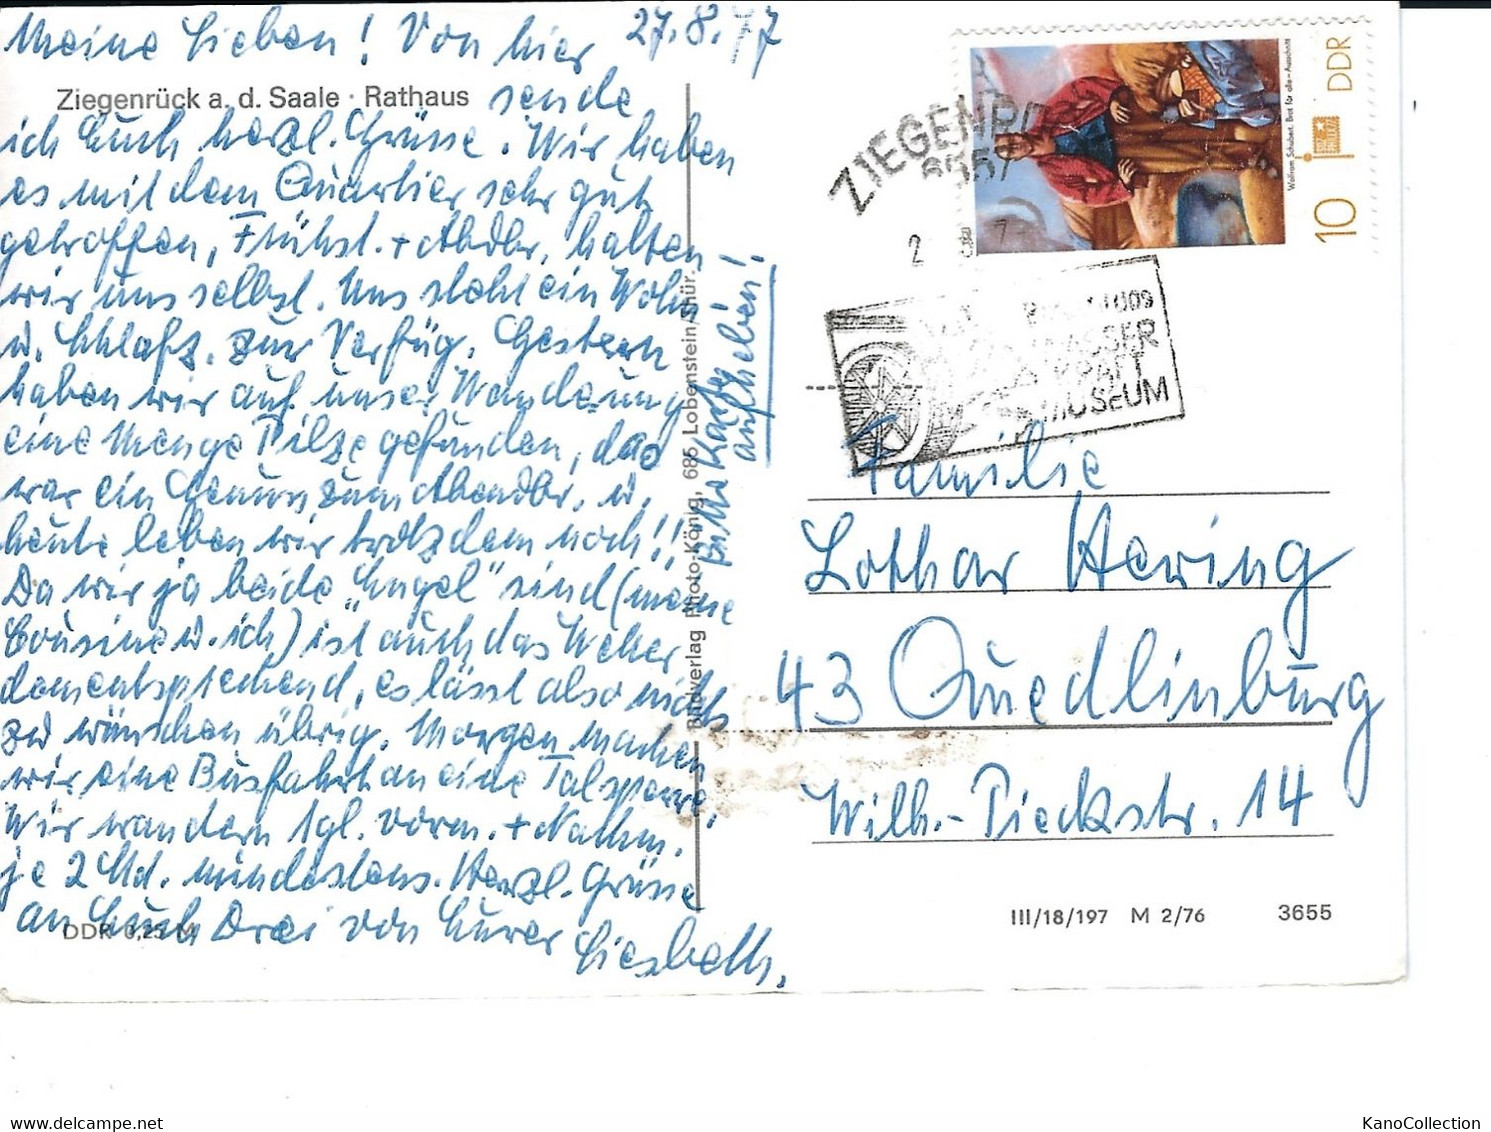 27.8.77
Meine Lieben! Von hier
Ziegenrück a. d. Saale · Rathaus
sende
ich Euch herzl. Grüsse. Wir haben
es mit dem Quartier sehr gut
getroffen, Frühst. + Abdbr. halten
wir uns selbst. Uns steht ein Wohn
u. Schlafz. zur Verfüg. Gestern
haben wir auf unser Wanderung
eine Menge Pilze gefunden, das
war ein Genuss zum Abendbr. u.
heute leben wir trotzdem noch!!
Da wir ja beide "Engel" sind (meine
Cousine u. ich) ist auch das Wetter
dementsprechend, es lässt also nichts
zu wünschen übrig. Morgen machen
wir eine Busfahrt an eine Talsperre.
Wir wandern tgl. vorm. + Nachm.
je 2 Std. mindestens. Herzl. Grüsse
an Euch Drei von Eurer
Liesbeth.
DDR 0,25 M
Bitte Karte
aufheben!
Bildverlag Photo-König, 685 Lobenstein/Thür.
ZIEGENRÜ
WASSER
KRAFT
MUSEUM
Wolfram Schubert. Brot für alle – Ausschnitt
10 DDR
Familie
Lothar Hering
43 Quedlinburg
Wilh.-Pieckstr. 14
III/18/197 M 2/76 3655
KanoCollection